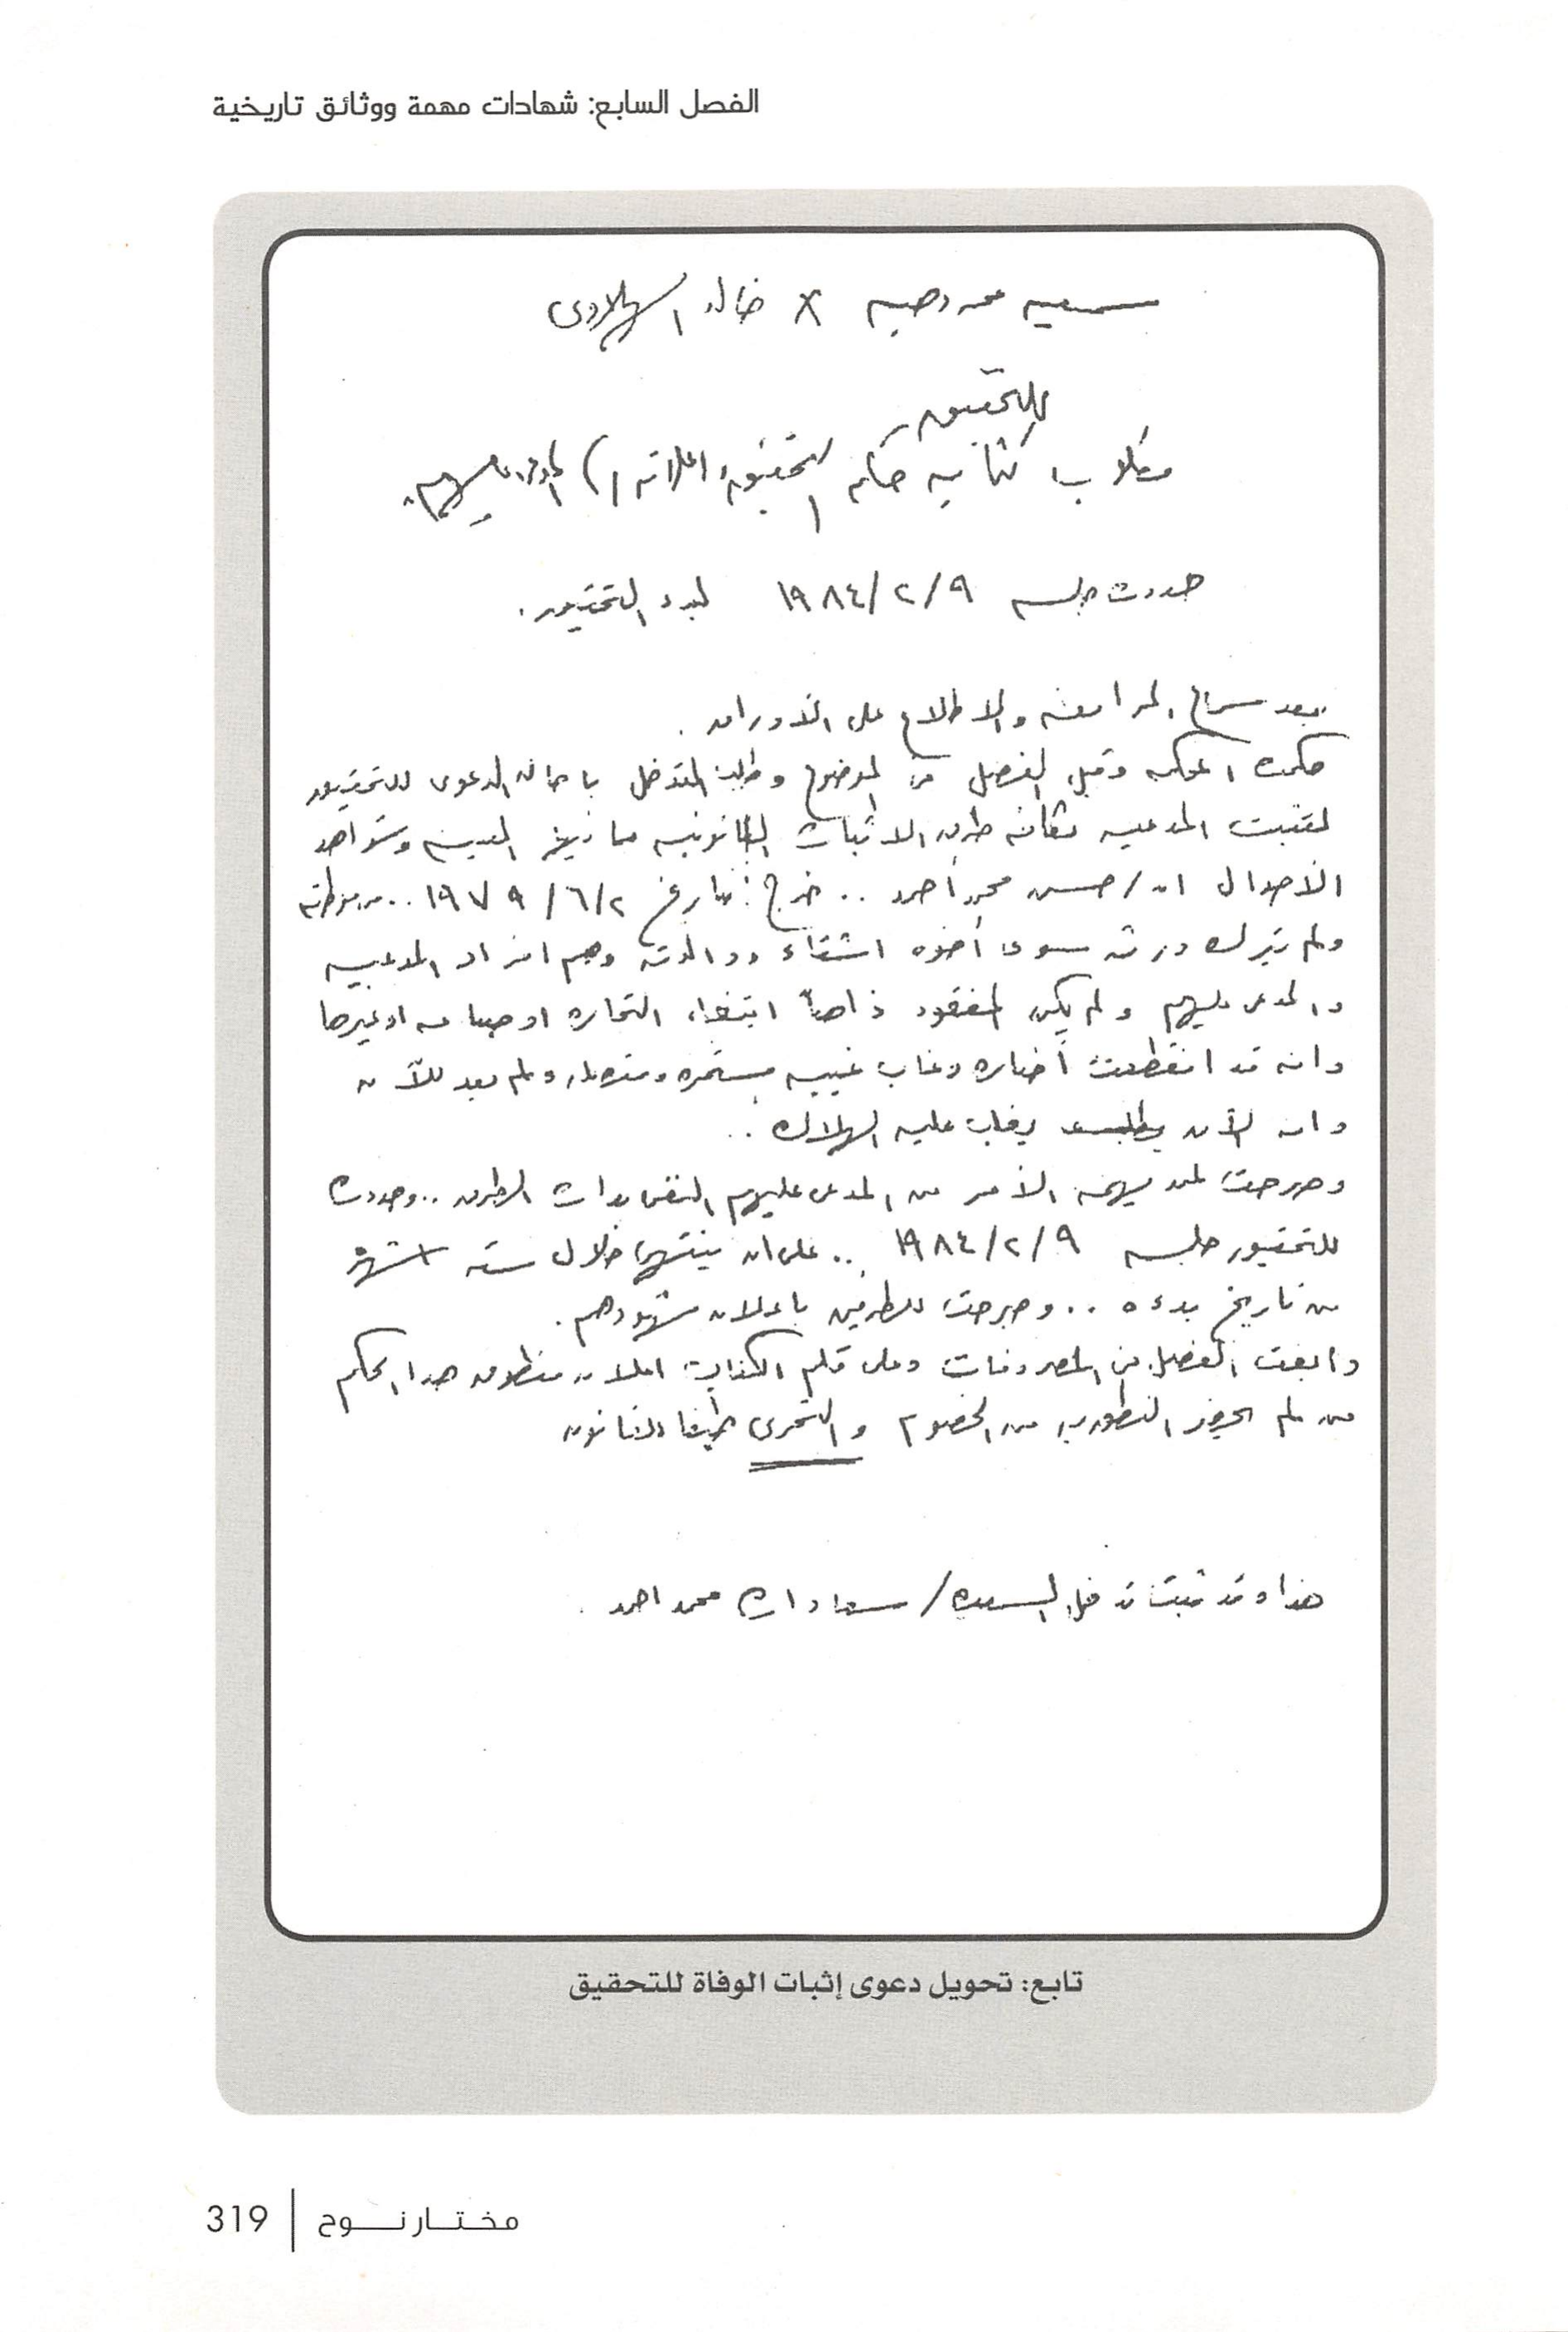 الفصل السابع: شهادات مهمة ووثائق تاريخية
سميه محمد وهبه × خالد
للتحقيق
مطلوب كتابيه حكم التحقيق واعلانه المدعى عليهم
حددت جلسه ٩/٢/١٩٨٤ لبدء التحقيق.
بعد سماع المرافعه والاطلاع على الأوراق.
حكمت المحكمه وقبل الفصل فى الموضوع وطلب التدخل باحالة الدعوى للتحقيق
لتثبت المدعيه بكافة طرق الاثبات القانونيه بما فيها البينه وشواهد
الأحوال ان/حسن محمد أحمد .. خرج بتاريخ ٢/٦/١٩٧٩ .. من موطنه
ولم يترك ورثه سوى أخوه اشقاء ووالدته وهم افراد المدعيه
والمدعى عليهم ولم يكن المفقود ذاهباً ابتغاء التجاره او صياعه او غيرها
وانه قد انقطعت أخباره وغاب غيبه مستمره ومتصله ولم يعد للآن
وانه الآن يغلب عليه الهلاك ..
وصرحت لمن يهمه الأمر من المدعى عليهم النفى بذات الطرق .. وحددت
للتحقيق جلسه ٩/٢/١٩٨٤ .. على ان ينتهى خلال سته اشهر
من تاريخ بدءه .. وصرحت للطرفين باعلان شهودهم.
وابقت الفصل فى المصروفات وعلى قلم الكتاب اعلان منطوق هذا الحكم
من لم يحضر النطق به من الخصوم والتحرى طبقا للقانون
هذا وقد ثبت تدخل السيده/ سعاد محمد احمد .
تابع: تحويل دعوى إثبات الوفاة للتحقيق
مختار نوح | 319